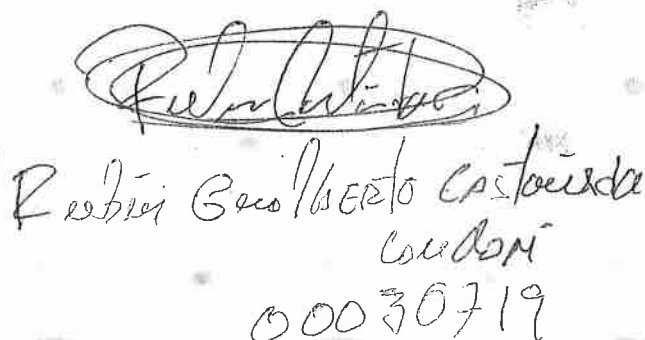 Rubén Guilberto Castañeda
Condori
00030719